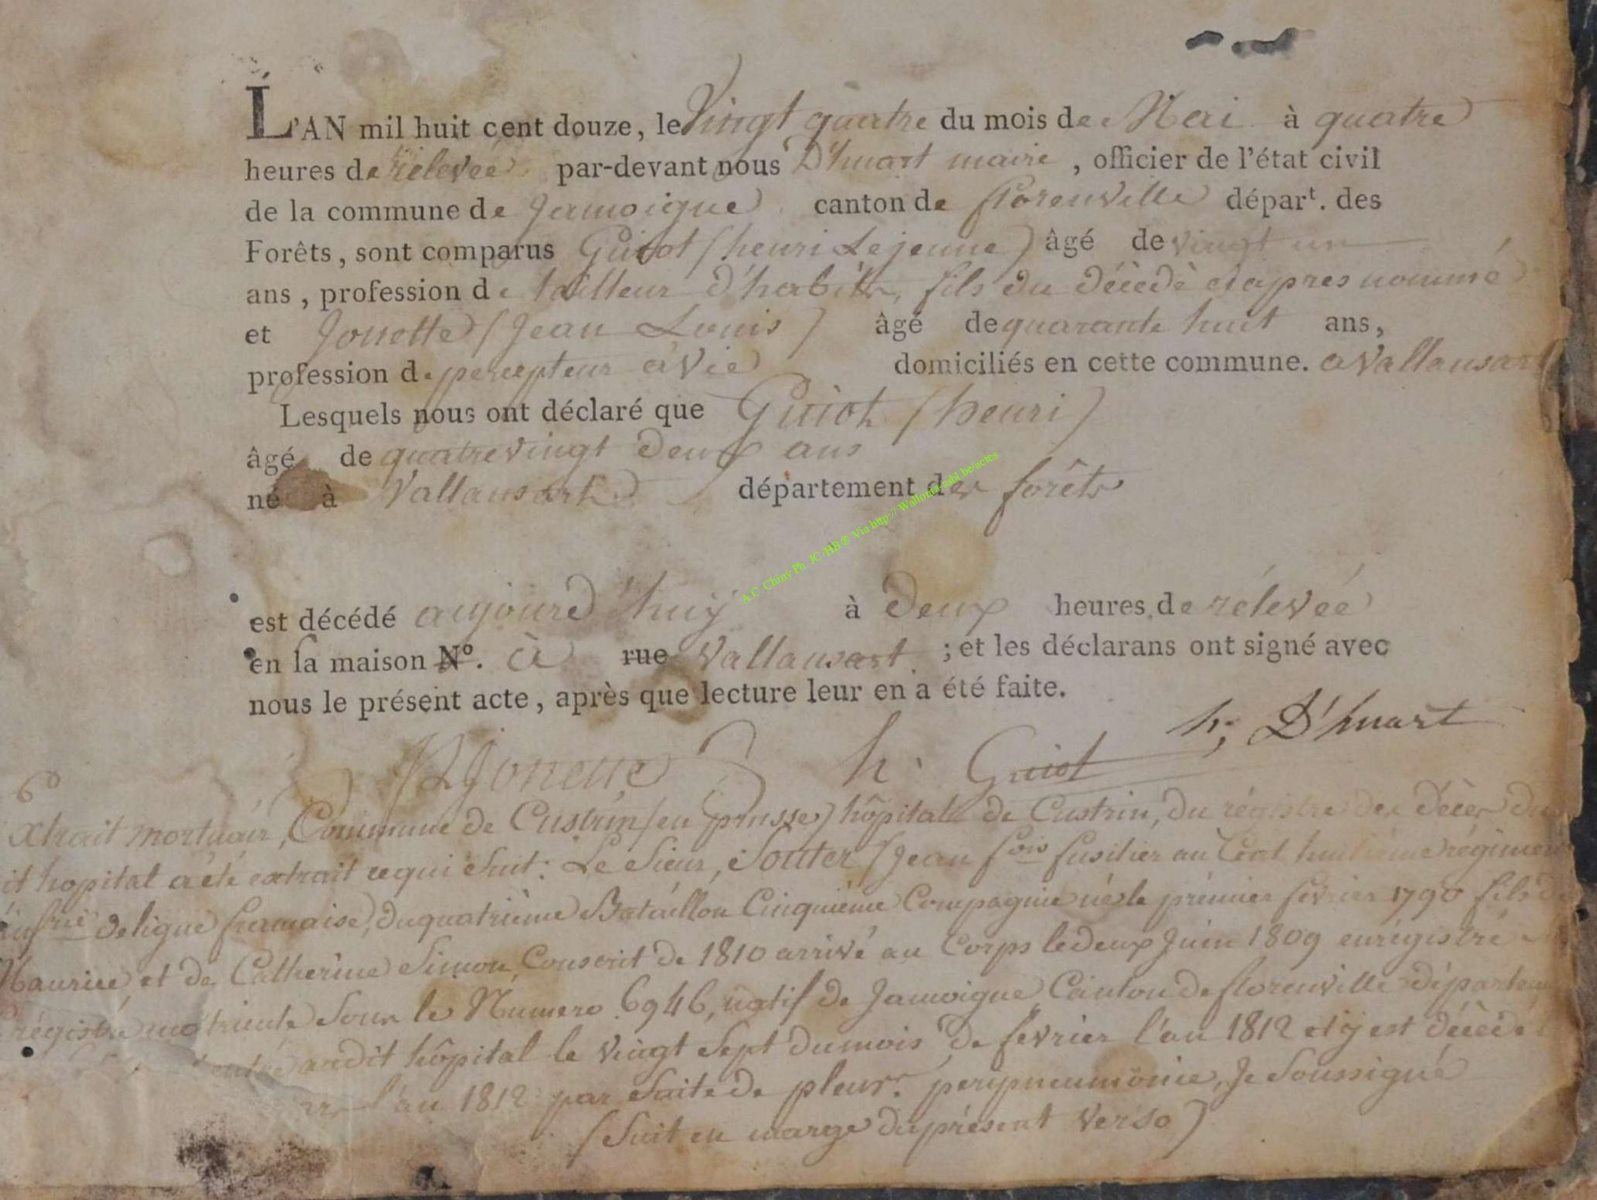 L'AN mil huit cent douze, le Vingt quatre du mois de Mai à quatre
heures de rélevée par-devant nous D'huart maire, officier de l'état civil
de la commune de Jamoigne canton de florenville départ. des
Forêts, sont comparus Guiot (henri Lejeune) âgé de vingt un
ans, profession de tailleur d'habits, fils du décédé ciapres nommé
et Jonette (Jean Louis) âgé de quarante huit ans,
profession de percepteur à vie domiciliés en cette commune. a Vallansart
Lesquels nous ont déclaré que Guiot (henri)
âgé de quatrevingt deux ans
né à Vallansart département des forêts
A.C. Chiny Ph. JC HB @ Via http://Wallonia.
est décédé aujourd'huy à deux heures de rélevée
en la maison Nº. à rue Vallansart ; et les déclarans ont signé avec
nous le présent acte, après que lecture leur en a été faite.
h; D'huart
Jonette h. Guiot
6º
Extrait mortuair, Commune de Custrin (en prusse) hôpital de Custrin, du régistre des décès du
dit hopital a été extrait ce qui suit: Le Sieur, Souter (Jean fois fusilier au Cent huitième régiment
infrie de ligne francaise, du quatrième Bataillon Cinquième Compagnie né le prémier février 1790 fils de
Maurice et de Catherine Simon, Conscrit de 1810 arrivé au Corps le deux Juin 1809 enrégistré au
régistre matricule Sous le Numero 6946, natif de Jamoigne Canton de florenville départem
entré audit hôpital le vingt Sept du mois de fevrier l'an 1812 et y est décédé
l'an 1812 par Suite de pleur. perypneumonie, Je Soussigné
(Suit en marge du présent verso)